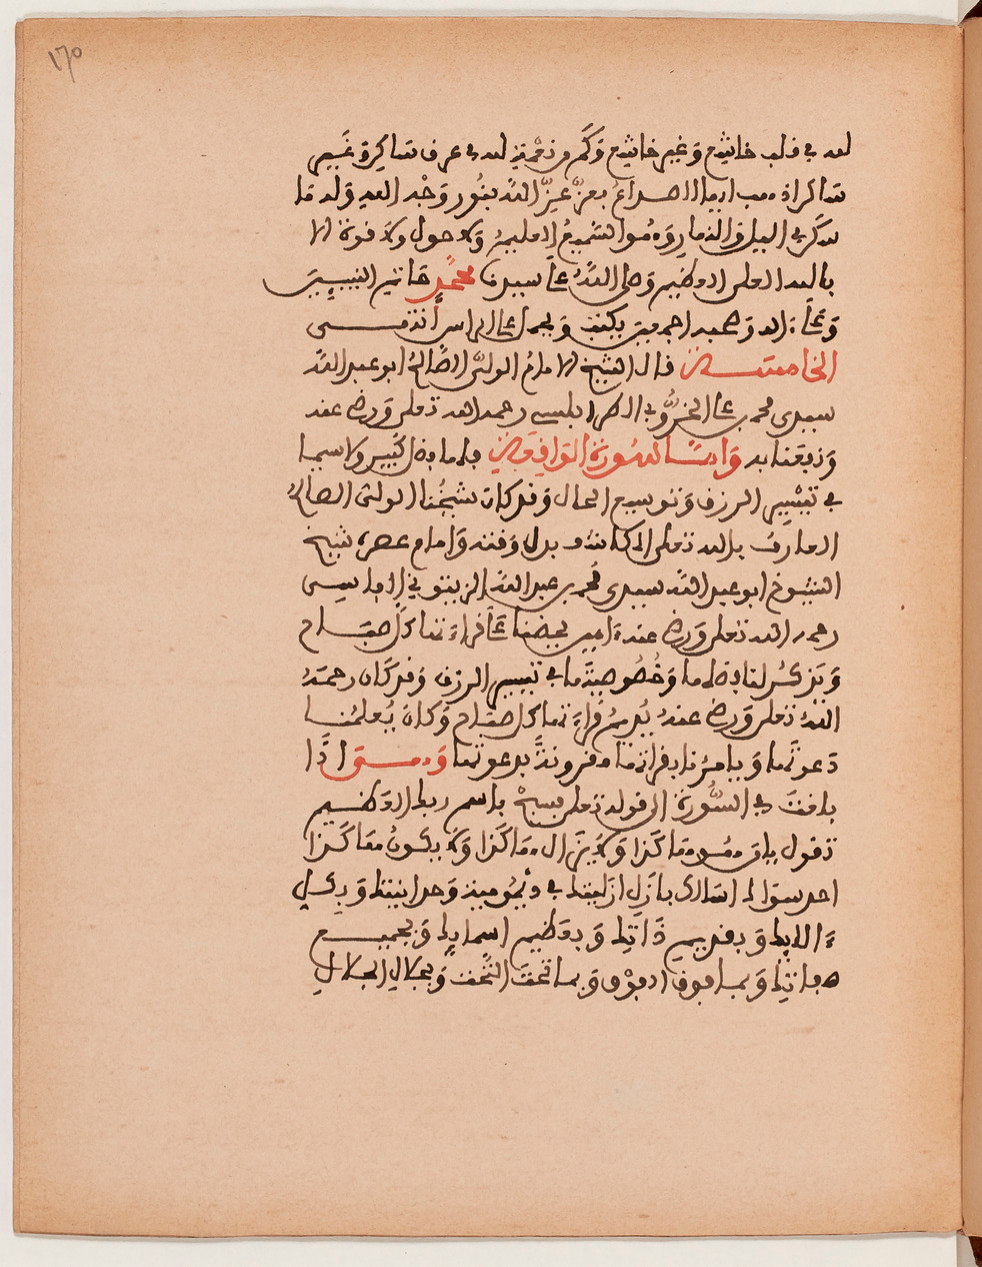 ١٧٥
لله في قلب خاشع وغير خاشع وكم من نعمة لله في عرف شاكر وغير
شاكر اذهب ايها الصداع بعز عز الله بنور وجه الله وله ما
سكن في اليل والنهار وهو السميع العليم ولا حول ولا قوة الا
بالله العلي العظيم وصلى الله على سيدنا محمد خاتم النبيين
وعلى ءاله وصحبه اجمعين يكتب ويجعل على الراس انتهى
الخامسة قال الشيخ الامام الولي الصالح ابو عبد الله
سيدي محمد بن علي الخروبي الطرابلسي رحمه الله تعلى ورضي عنه
ونفعنا به وامّا سورة الواقعة فلها فضل كبير ولا سيما
في تيسير الرزق وتوسيع الحال وقد كان شيخنا الولي الصالح
العارف بالله تعلى المكاشف بدل وقته وامام عصره شيخ
الشيوخ ابو عبد الله سيدي محمد بن عبد الله الزيتوني الفاسي
رحمه الله تعلى ورضي عنه ءامين يحضنا على قراءتها كل صباح
ويذكر لنا فضلها وخصوصيتها في تيسير الرزق وقد كان رحمه
الله تعلى ورضي عنه يديم قراءتها كل صباح وكان يعلمنا
دعوتها ويامرنا بقراءتها مقرونة بدعوتها وهي اذا
بلغت في السورة الى قوله تعلى فسبح باسم ربك العظيم
تقول يا من هو هكذا ولا يزال هكذا ولا يكون هكذا
احد سواك اسالك بازل ازليتك في ديمومية وحدانيتك وبكل
ءالائك وبقديم ذاتك وبعظيم اسمائك وبجميع
صفاتك وبما فوق الفوق وبما تحت التحت وبجلال الجلال